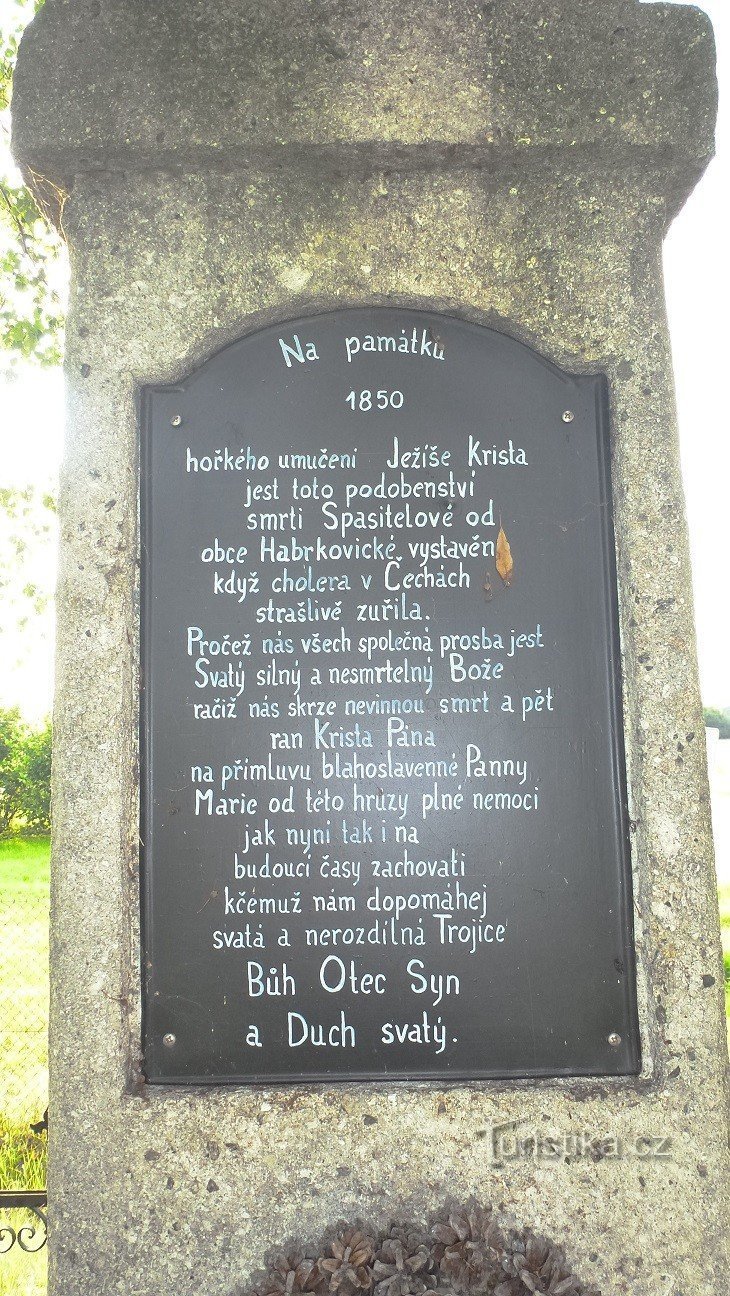 Na památku
1850
hořkého umučení Ježíše Krista
jest toto podobenství
smrti Spasitelově od
obce Habrkovické, vystavěn
když cholera v Čechách
strašlivě zuřila.
Pročež nás všech společná prosba jest
Svatý silný a nesmrtelný Bože
račiž nás skrze nevinnou smrt a pět
ran Krista Pána
na přímluvu blahoslavenné Panny
Marie od této hruzy plné nemoci
jak nyni tak i na
budoucí časy zachovati
kčemuž nám dopomáhej
svatá a nerozdílná Trojice
Bůh Otec Syn
a Duch svatý.
Turistika.cz